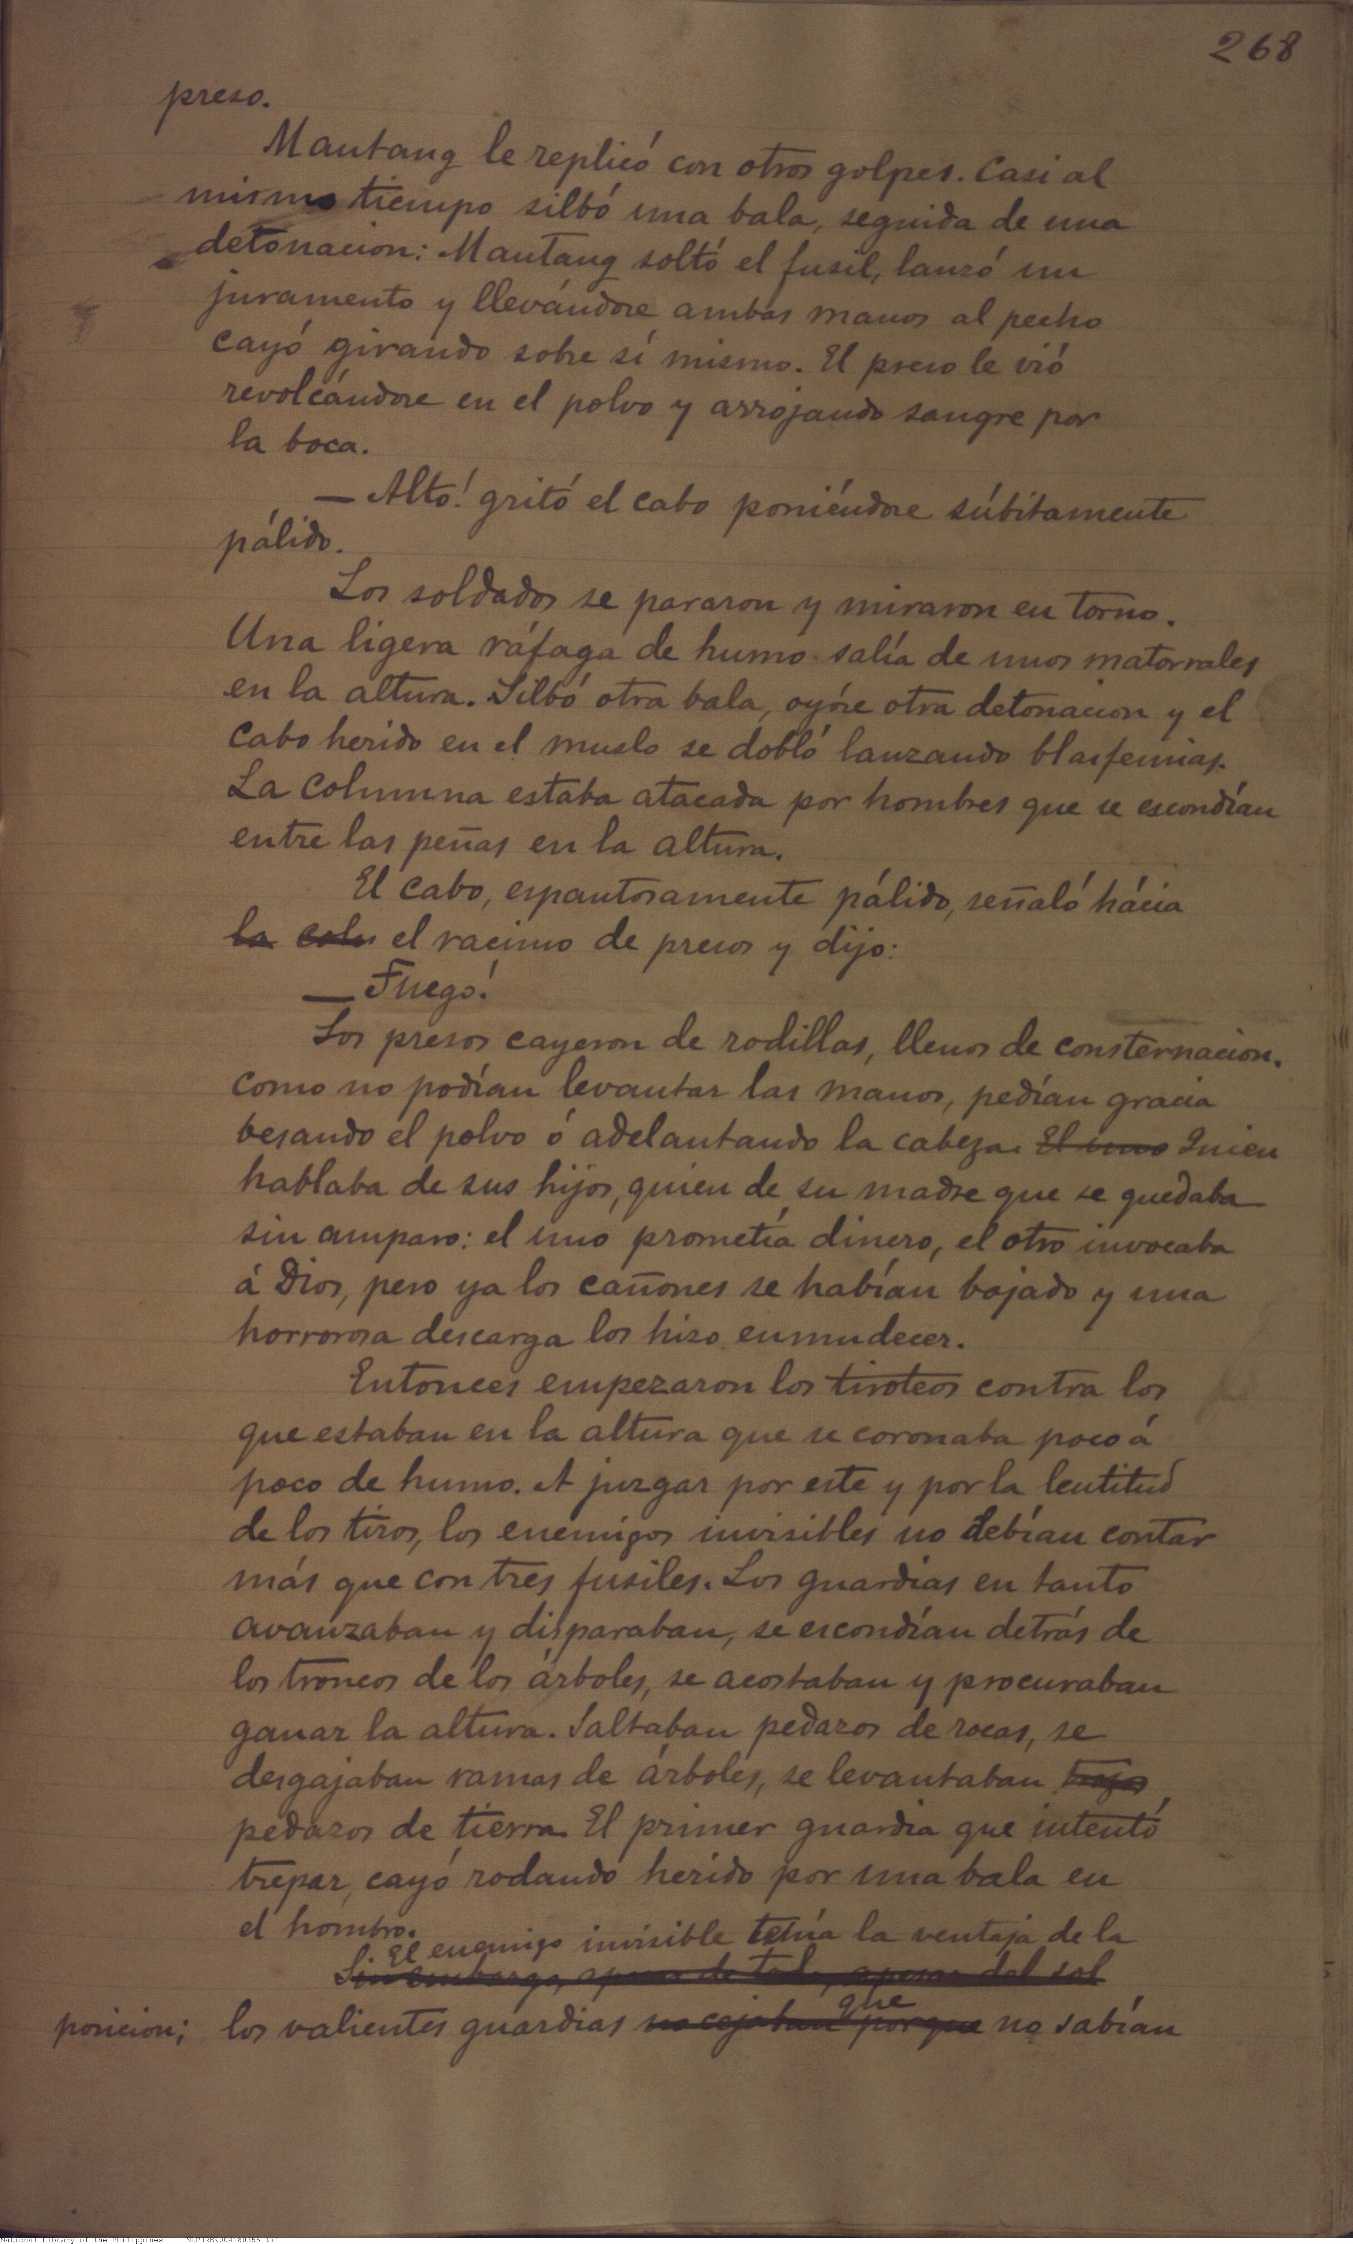 268
preso.
Mautang le replicó con otros golpes. Casi al
mismo tiempo silbó una bala, seguida de una
detonacion: Mautang soltó el fusil, lanzó un
juramento y llevándose ambas manos al pecho
cayó girando sobre sí mismo. El preso le vió
revolcándose en el polvo y arrojando sangre por
la boca.
— Alto! gritó el cabo poniéndose súbitamente
pálido.
Los soldados se pararon y miraron en torno.
Una ligera ráfaga de humo salía de unos matorrales
en la altura. Silbó otra bala, oyóse otra detonacion y el
cabo herido en el muslo se dobló lanzando blasfemias.
La columna estaba atacada por hombres que se escondían
entre las peñas en la altura.
El cabo, espantosamente pálido, señaló hácia
la colu el racimo de presos y dijo:
— Fuego!
Los presos cayeron de rodillas, llenos de consternacion.
como no podían levantar las manos, pedían gracia
besando el polvo ó adelantando la cabeza. El uno Quien
hablaba de sus hijos, quien de su madre que se quedaba
sin amparo: el uno prometía dinero, el otro invocaba
á Dios, pero ya los cañones se habían bajado y una
horrorosa descarga los hizo enmudecer.
Entonces empezaron los tiroteos contra los
que estaban en la altura que se coronaba poco á
poco de humo. A juzgar por este y por la lentitud
de los tiros, los enemigos invisibles no debían contar
más que con tres fusiles. Los guardias en tanto
avanzaban y disparaban, se escondían detrás de
los troncos de los árboles, se acostaban y procuraban
ganar la altura. Saltaban pedazos de rocas, se
desgajaban ramas de árboles, se levantaban
pedazos de tierra. El primer guardia que intentó
trepar, cayó rodando herido por una bala en
el hombro.
El enemigo invisible tenía la ventaja de la
Sin embargo, apesar de todo, apesar del sol
posicion; los valientes guardias no cejaban porque que no sabían
National Library of the Philippines